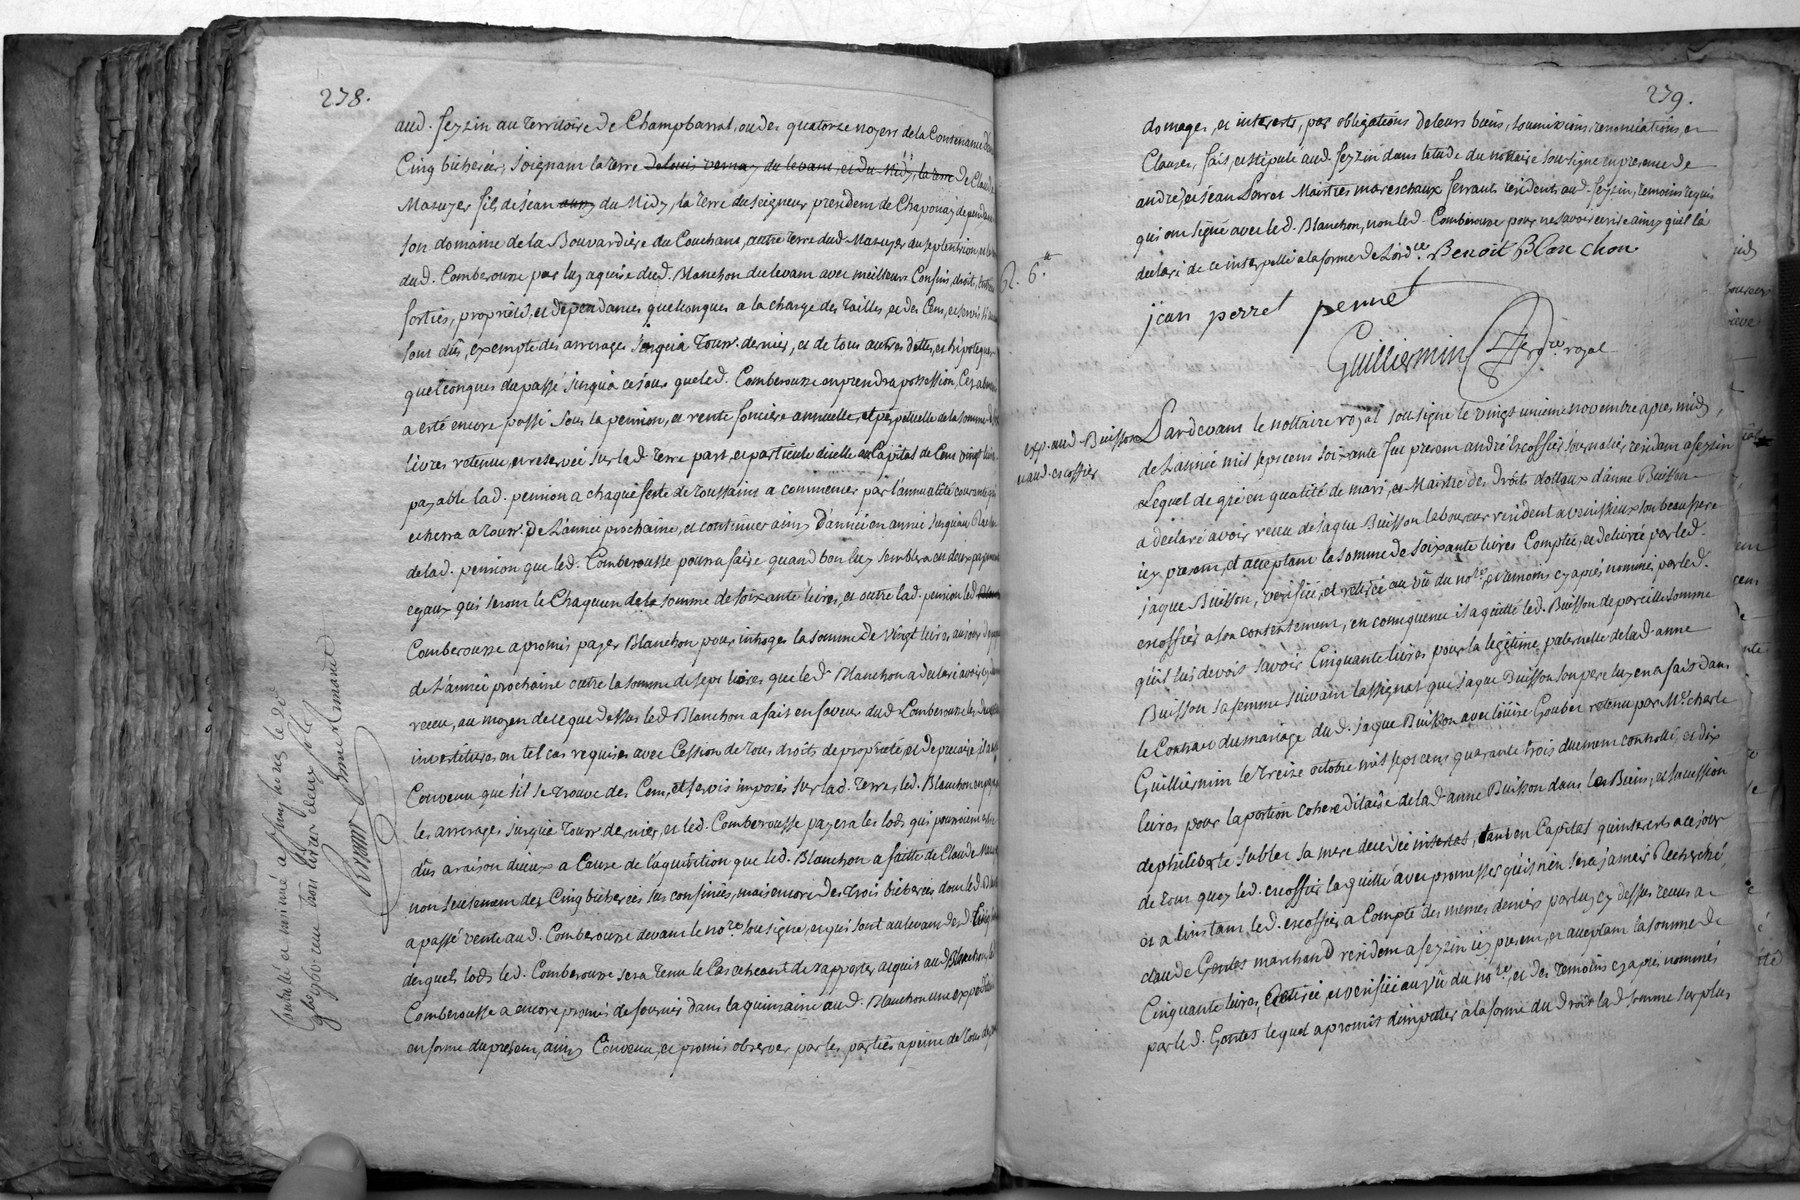 278.
aud. feyzin au territoire de Champbarrat, ou des quatorze noyers de la Contenance d'en
Cinq bicherées, joignant la terre de louis vernay du levant, et du Midy, la terre de Claude
Mazuyer fils de jean du Midy, la terre du seigneur president de Chaponay dependante
son domaine de la Bouvardière du Couchant, autre terre dud. Mazuyer du septentrion, et
dud. Comberousse par luy aquise dud. Blanchon du levant avec meilleurs Confins, droits, entrées
sorties, proprietés, et dependances quelconques a la charge des tailles, et des Cens, et servis
sont dûs, exempte des arrerages jusqu'à Tour. dernier, et de tous autres dettes, et hipoteques
quelconques du passé jusqu'a ce jour que led. Comberousse en prendra possession,
a esté encore passé sous la pension, et rente fonciere annuelle, et perpetuelle de la somme
livres retenue, et reservée sur lad. terre part, et particule d'icelle au Capital de Cent vingt livres
payable lad. pension a chaque feste de Toussaint a commencer par l'annualité courante qui
echerra a Tour. de l'année prochaine, et continuer ainsy d'année en année jusqu'au
de lad. pension que led. Comberousse pourra faire quand bon luy semblera en deux payements
egaux qui seront le Chaquun de la somme de soixante livres, et outre lad. pension led.
Comberousse a promis payer Blanchon pour introges la somme de vingt livres au jour de
de l'année prochaine outre la somme de sept livres que led. Blanchon a declaré avoir cy
receu, au moyen de ce que dessus led. Blanchon a fait en faveur dud. Comberousse les
investitures en tel cas requises avec Cession de tous droits de proprieté, et de precaire il a
Convenu que s'il se trouve des Cens, et servis imposés sur lad. Terre, led. Blanchon en payera
les arrerages jusqu'à Tour. dernier, et led. Comberousse payera les lods qui pourroient estre
dûs a raison d'iceux a Cause de l'aquisition que led. Blanchon a faitte de Claude
non seulement des Cinq bicherées sus confinées, mais encore des trois bicherées dont led.
a passé vente aud. Comberousse devant le nore sousigné, et qui sont au levant desd. Cinq
desquels lods led. Comberousse sera tenu le Cas echeant de rapporter acquis aud. Blanchon, led.
Comberousse a encore promis de fournir dans la quinzaine aud. Blanchon une expedition
en forme du present, ainsy Convenu, et promis observer par les parties a peine de tous depens
279.
domages, et interests, par obligations de leurs biens, soumissions, renonciations, et
Clauses, fait, et stipulé aud. feyzin dans l'etude du nottaire sousigné en presence de
andré, et jean Perret Maistres mareschaux ferrants residents aud. feyzin, temoins requis
qui ont signé avec led. Blanchon, non led. Comberousse pour ne savoir ecrire ainsy qu'il l'a
declaré de ce interpellé a la forme de l'ordce. Benoit Blanchon
R. 6.tt
jean perret perret
Guilliermin nore. royal
exp. aud. Buisson
n aud. escoffier
Pardevant le nottaire royal sousigné le vingt unieme novembre apres midy,
de l'année mil sept cens soixante fut present andré Escoffier journalier resident a feyzin
Lequel de gré en qualité de mari, et Maistre des droits dottaux d'anne Buisson
a déclaré avoir receu de jaque Buisson laboureur resident a venissieux son beaufrere
icy present, et acceptant la somme de soixante livres Comptée, et delivrée par led.
jaque Buisson, verifiée, et retirée au vû du nore, et temoins cy apres nommés par led.
escoffier a son contentement, en consequence il a quitté led. Buisson de pareille somme
qu'il luy devoit savoir Cinquante livres pour la legitime paternelle de lad. anne
Buisson sa femme suivant l'assignat que jaque Buisson son pere luy en a fait dans
le Contrat du mariage dud. jaque Buisson avec loüise Gouber retenu par Me. charle
Guilliermin le treize octobre mil sept cens quarante trois duement controllé, et dix
livres pour la portion cohereditaire de lad. anne Buisson dans les Biens, et succession
de philiberte Sublet sa mere decedée intestat, tant en Capital qu'interests a ce jour
de tout quoy led. escoffier l'a quitté avec promesses qu'il n'en sera jamais Recherché
et a l'instant led. escoffier a Compté des memes deniers par luy cy dessus receus a
claude Gontes marchand resident a feyzin icy present, et acceptant la somme de
Cinquante livres, Retirée et verifiée au vû du nore, et des temoins cy apres nommés
par led. Gontes lequel a promis d'imputer a la forme du Droit lad. somme sur plus